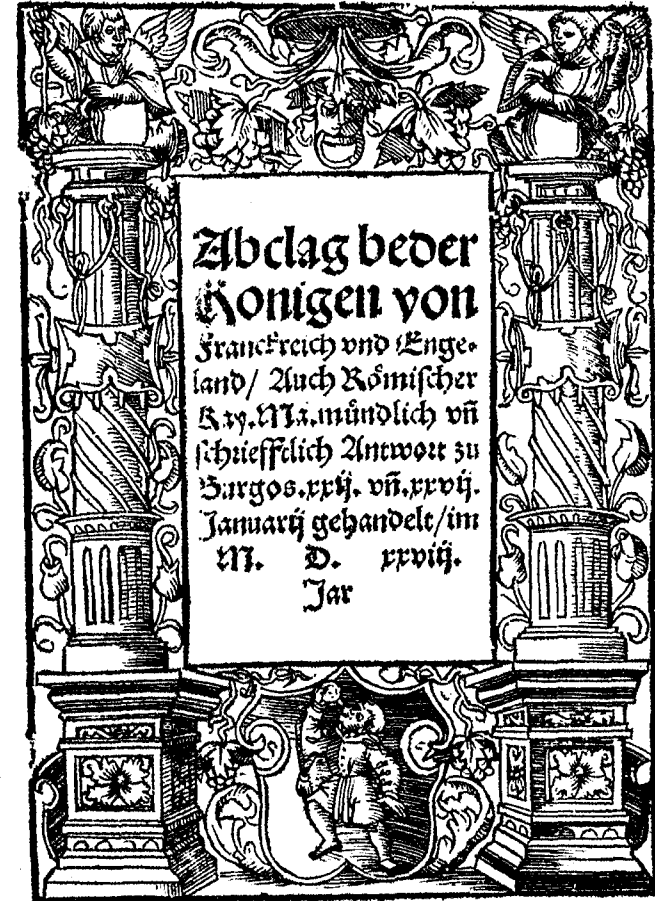 Abclag beder
Konigen von
Franckreich vnd Enge-
land/ Auch Römischer
Kay. Ma. mündlich vñ
schriefftlich Antwort zu
Burgos. xxij. vñ. xxvij.
Januarij gehandelt/ im
M. D. xxviij.
Jar